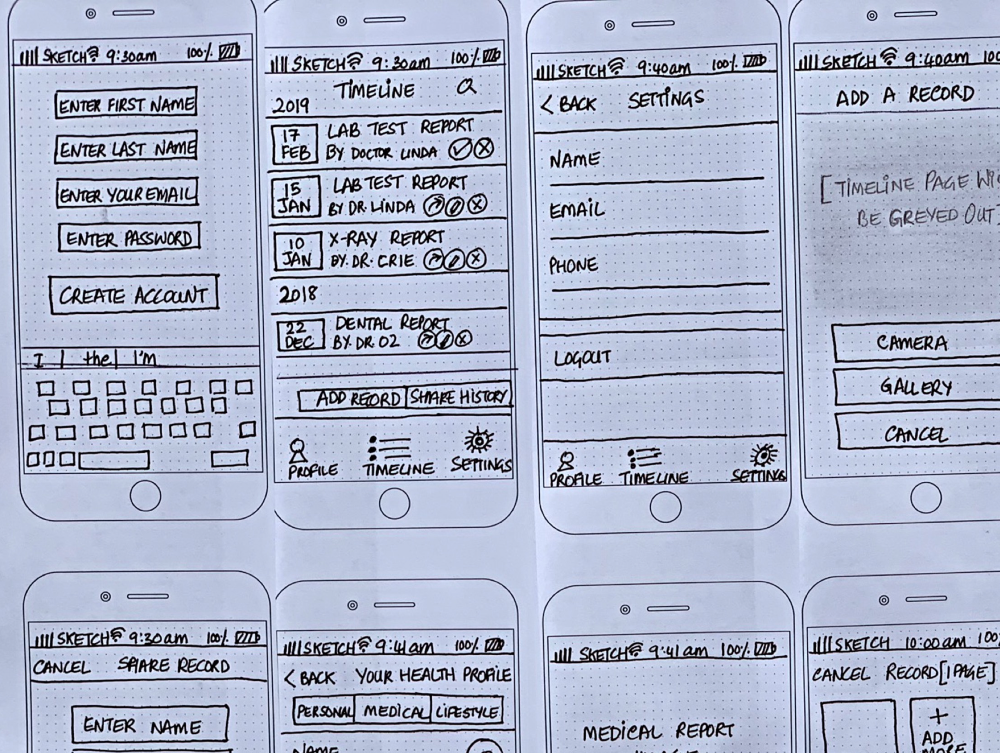 SKETCH 9:30am 100%
ENTER FIRST NAME
ENTER LAST NAME
ENTER YOUR EMAIL
ENTER PASSWORD
CREATE ACCOUNT
I | the | I'm
SKETCH 9:30am 100%
TIMELINE
2019
17 FEB
LAB TEST REPORT
BY DOCTOR LINDA
15 JAN
LAB TEST REPORT
BY DR. LINDA
10 JAN
X-RAY REPORT
BY. DR. CRIE
2018
22 DEC
DENTAL REPORT
BY. DR OZ
ADD RECORD SHARE HISTORY
PROFILE TIMELINE SETTINGS
SKETCH 9:40am 100%
< BACK SETTINGS
NAME
EMAIL
PHONE
LOGOUT
PROFILE TIMELINE SETTINGS
SKETCH 9:40am 100
ADD A RECORD
[TIMELINE PAGE
BE GREYED OUT
CAMERA
GALLERY
CANCEL
SKETCH 9:30am 100%
CANCEL SHARE RECORD
ENTER NAME
SKETCH 9:41am 100%
< BACK YOUR HEALTH PROFILE
PERSONAL MEDICAL LIFESTYLE
NAME
SKETCH 9:41am 100%
MEDICAL REPORT
SKETCH 10:00am 100
CANCEL RECORD [1 PAGE]
+
ADD
MORE